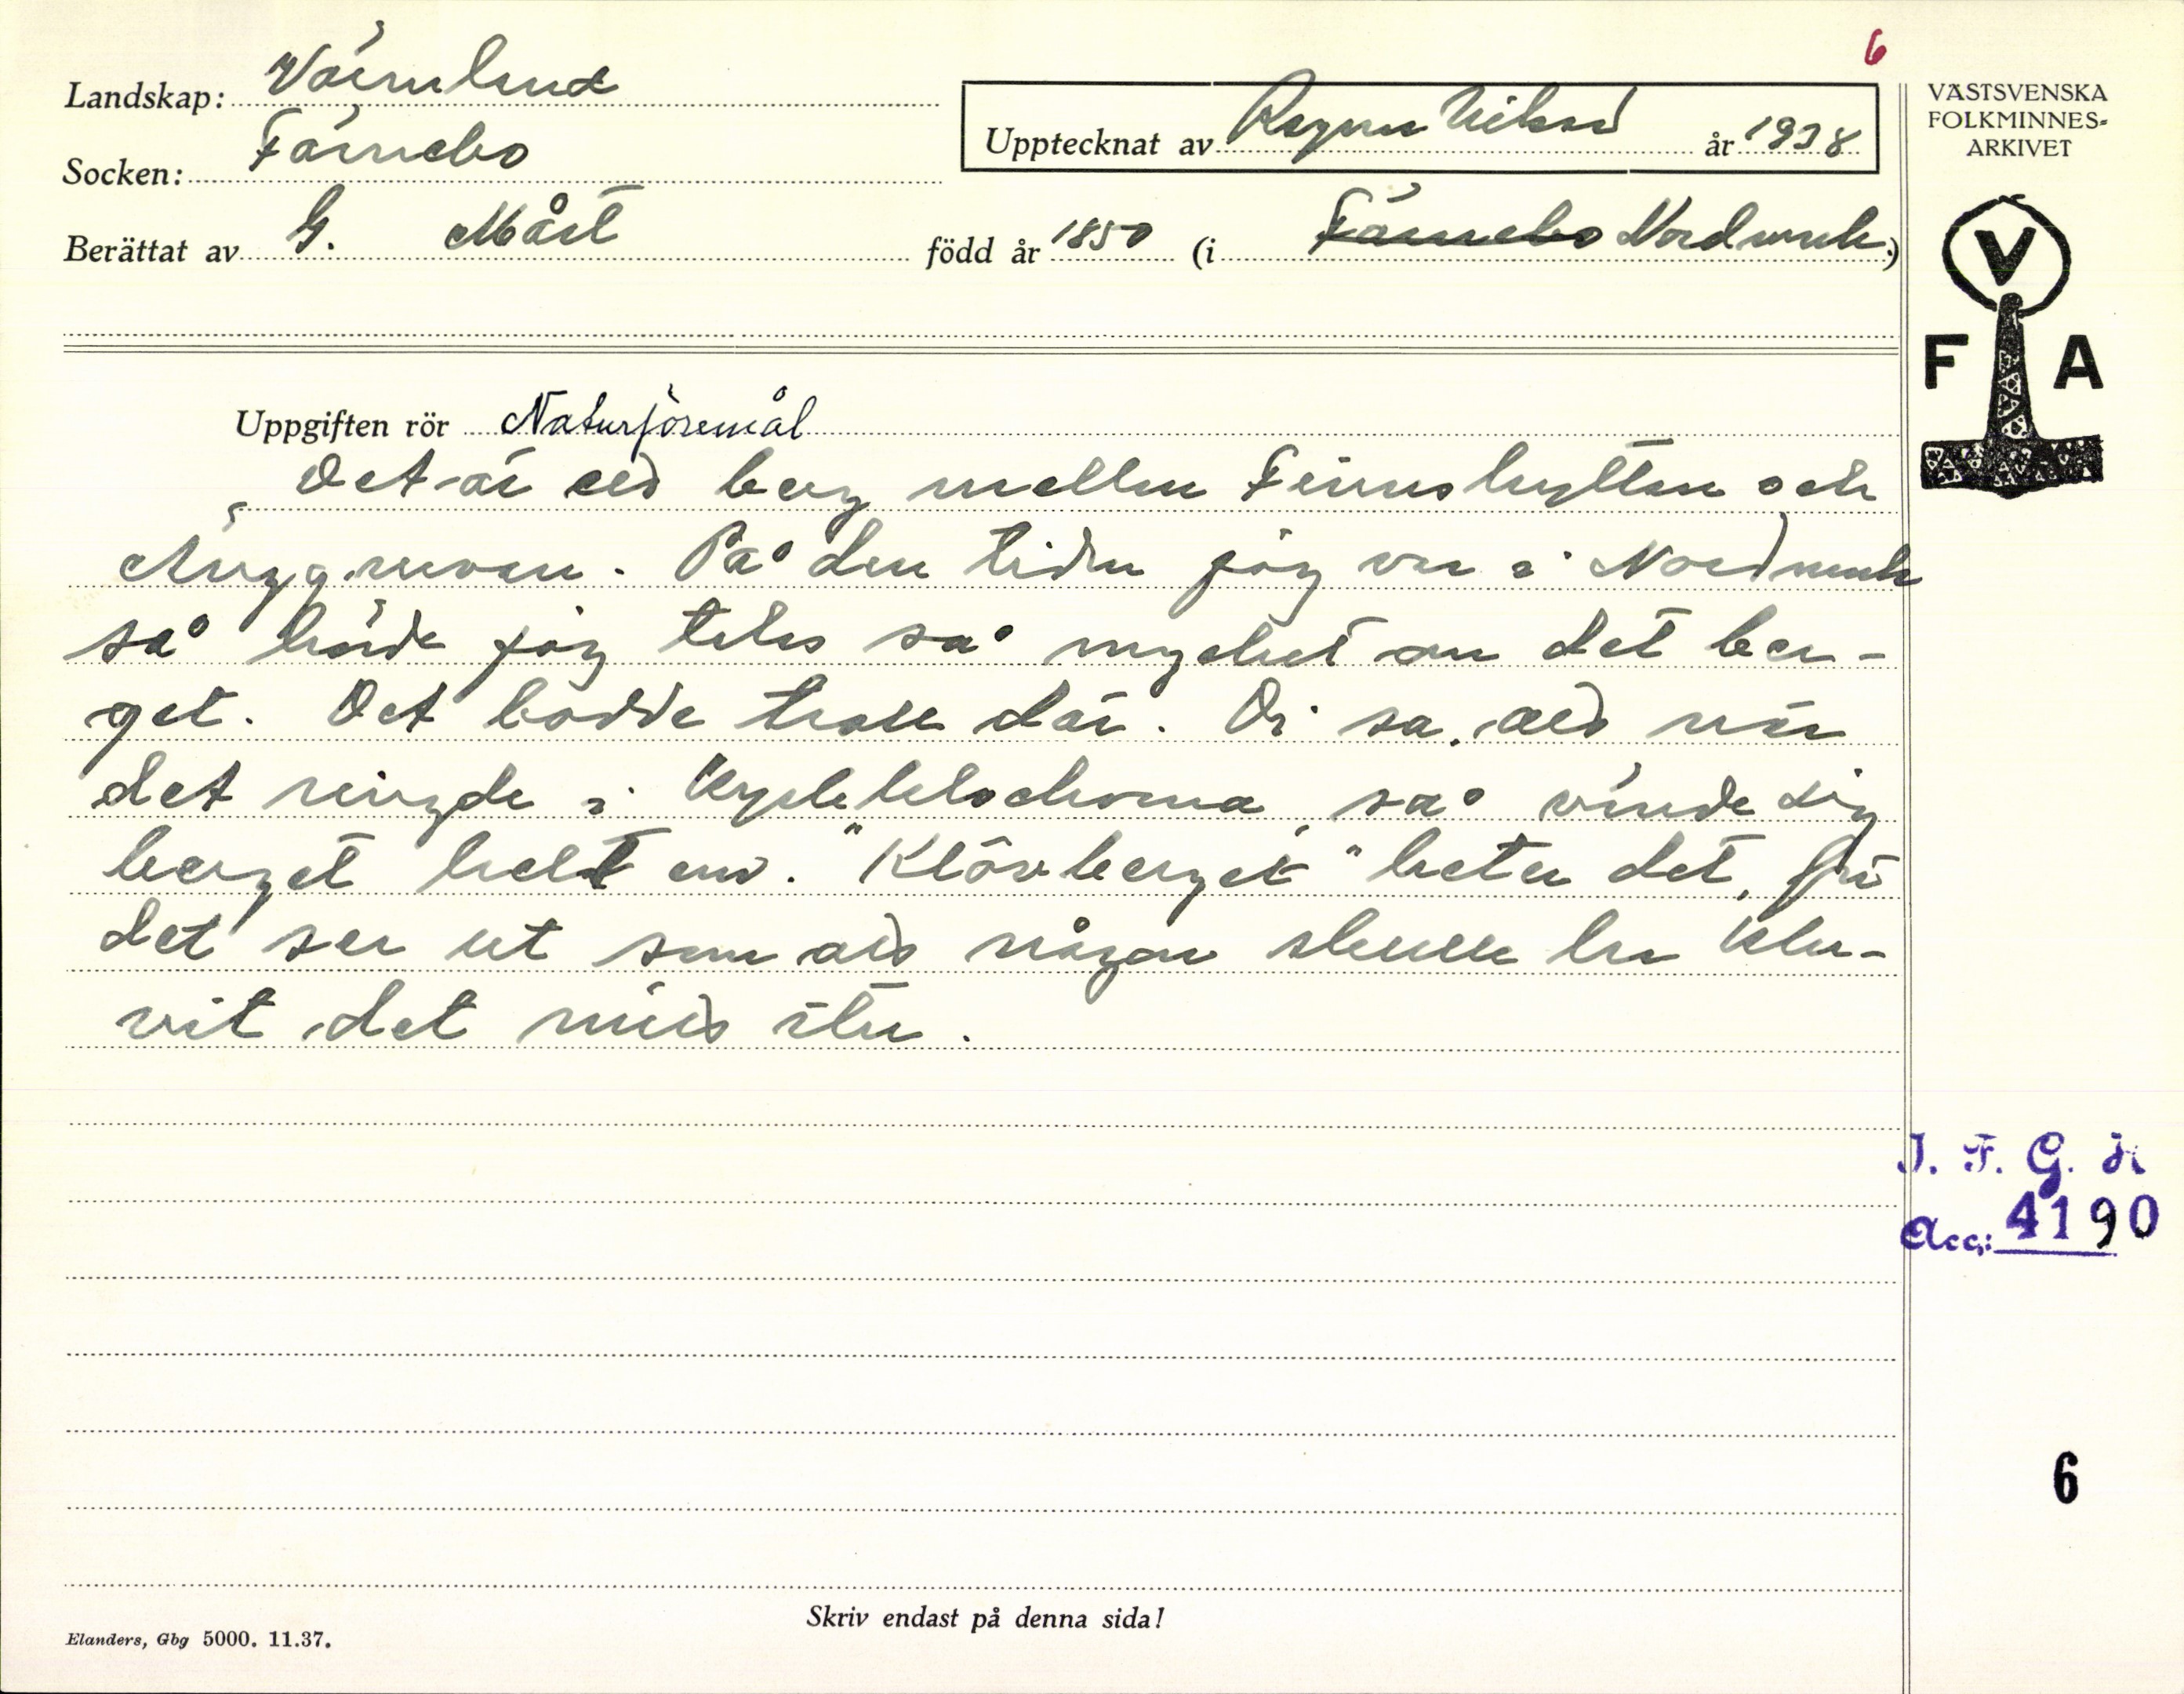 6
Landskap: Värmland
Socken: Färnebo
Upptecknat av Ragnar Nilsson år 1938
Berättat av G. Måst född år 1850 (i Färnebo Nordmark)
VÄSTSVENSKA
FOLKMINNES-
ARKIVET
V
F A
Uppgiften rör Naturföremål
Det är ett berg mellan Finnshyttan och
gruvan. På den tiden jag var i Nordmark
så hörde jag talas så mycket om det ber-
get. Det bodde troll där. Di sa, att när
det ringde i kyrkklockorna, så vände sig
berget helt om. "Klövberget" heter det, för
det ser ut som att någon skulle ha klu-
vit det mitt itu.
I. F. G. H
Acc: 4190
6
Skriv endast på denna sida!
Elanders, Gbg 5000. 11.37.